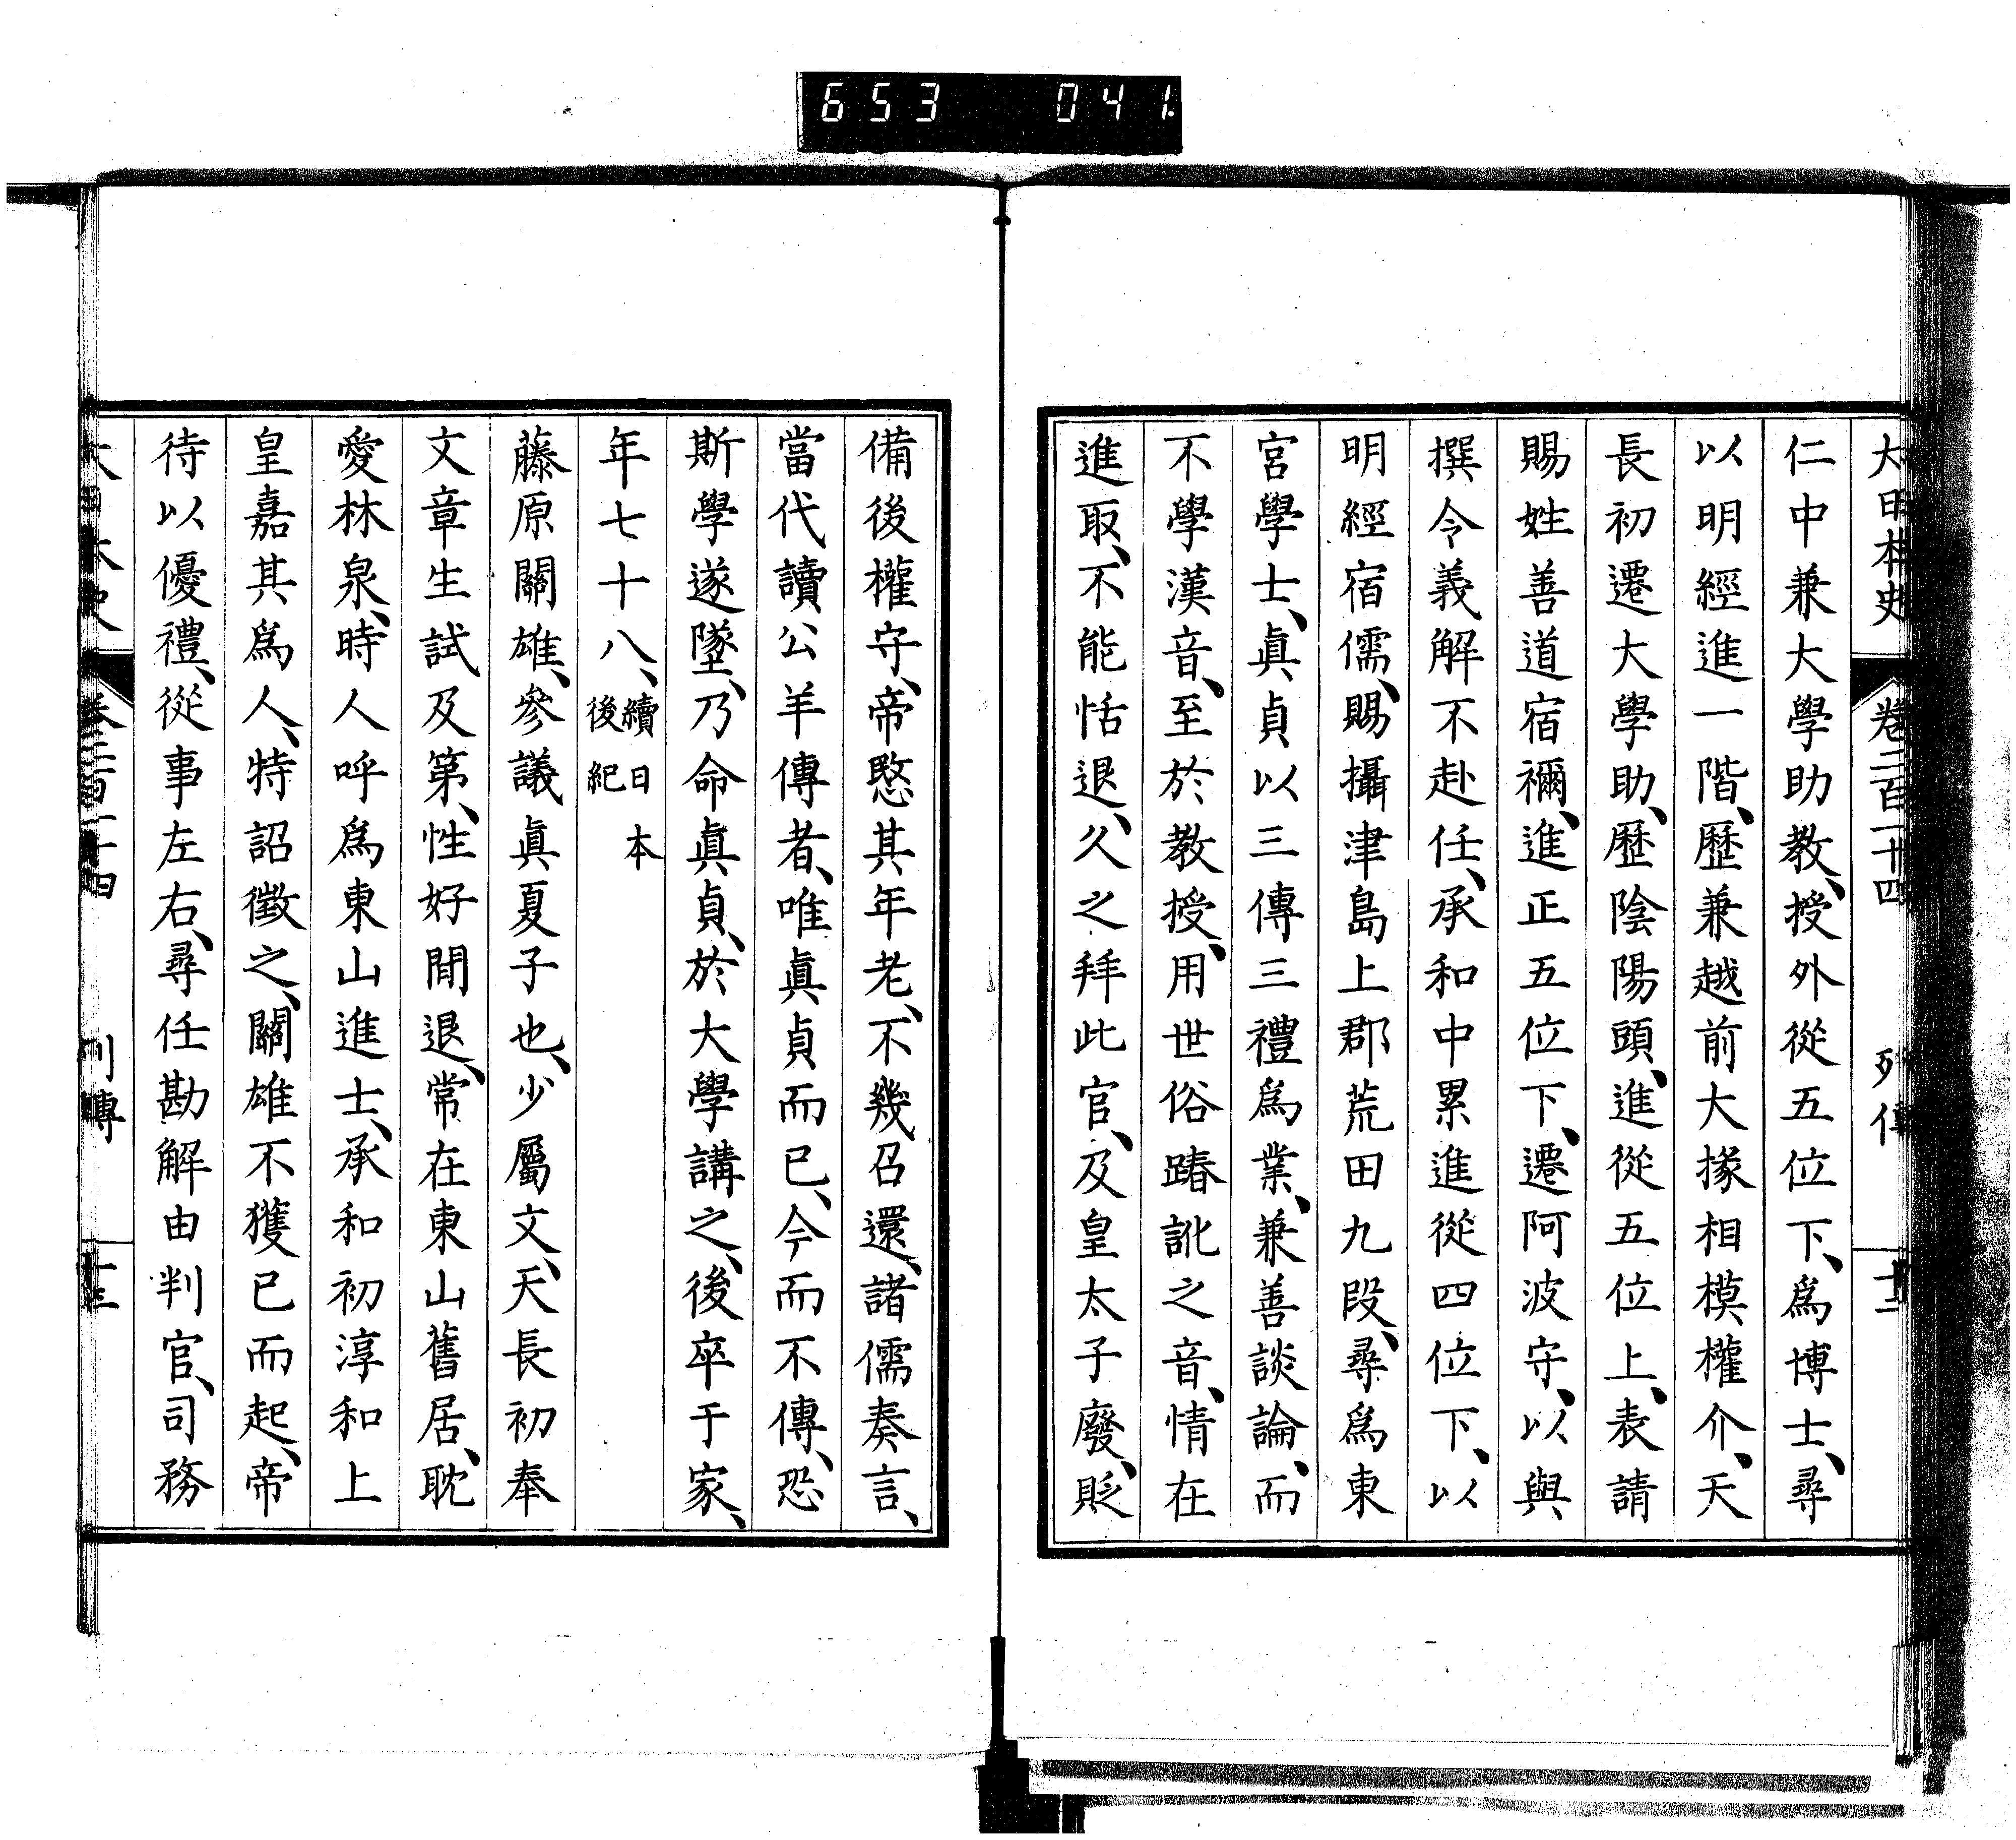 653 041
大日本史 卷二百一十四 列傳 十二
仁中兼大學助教、授外從五位下、爲博士、尋
以明經進一階、歷兼越前大掾相模權介、天
長初遷大學助、歷陰陽頭、進從五位上、表請
賜姓善道宿禰、進正五位下、遷阿波守、以與
撰令義解不赴任、承和中累進從四位下、以
明經宿儒、賜攝津島上郡荒田九段、尋爲東
宮學士、眞貞以三傳三禮爲業、兼善談論、而
不學漢音、至於教授、用世俗踳訛之音、情在
進取、不能恬退、久之拜此官、及皇太子廢、貶
備後權守、帝愍其年老、不幾召還、諸儒奏言、
當代讀公羊傳者、唯眞貞而已、今而不傳、恐
斯學遂墜、乃命眞貞、於大學講之、後卒于家、
年七十八、續日本後紀
藤原關雄、參議眞夏子也、少屬文、天長初奉
文章生試及第、性好閒退、常在東山舊居、耽
愛林泉、時人呼爲東山進士、承和初淳和上
皇嘉其爲人、特詔徵之、關雄不獲已而起、帝
待以優禮、從事左右、尋任勘解由判官、司務
大日本史 卷二百一十四 列傳 十三